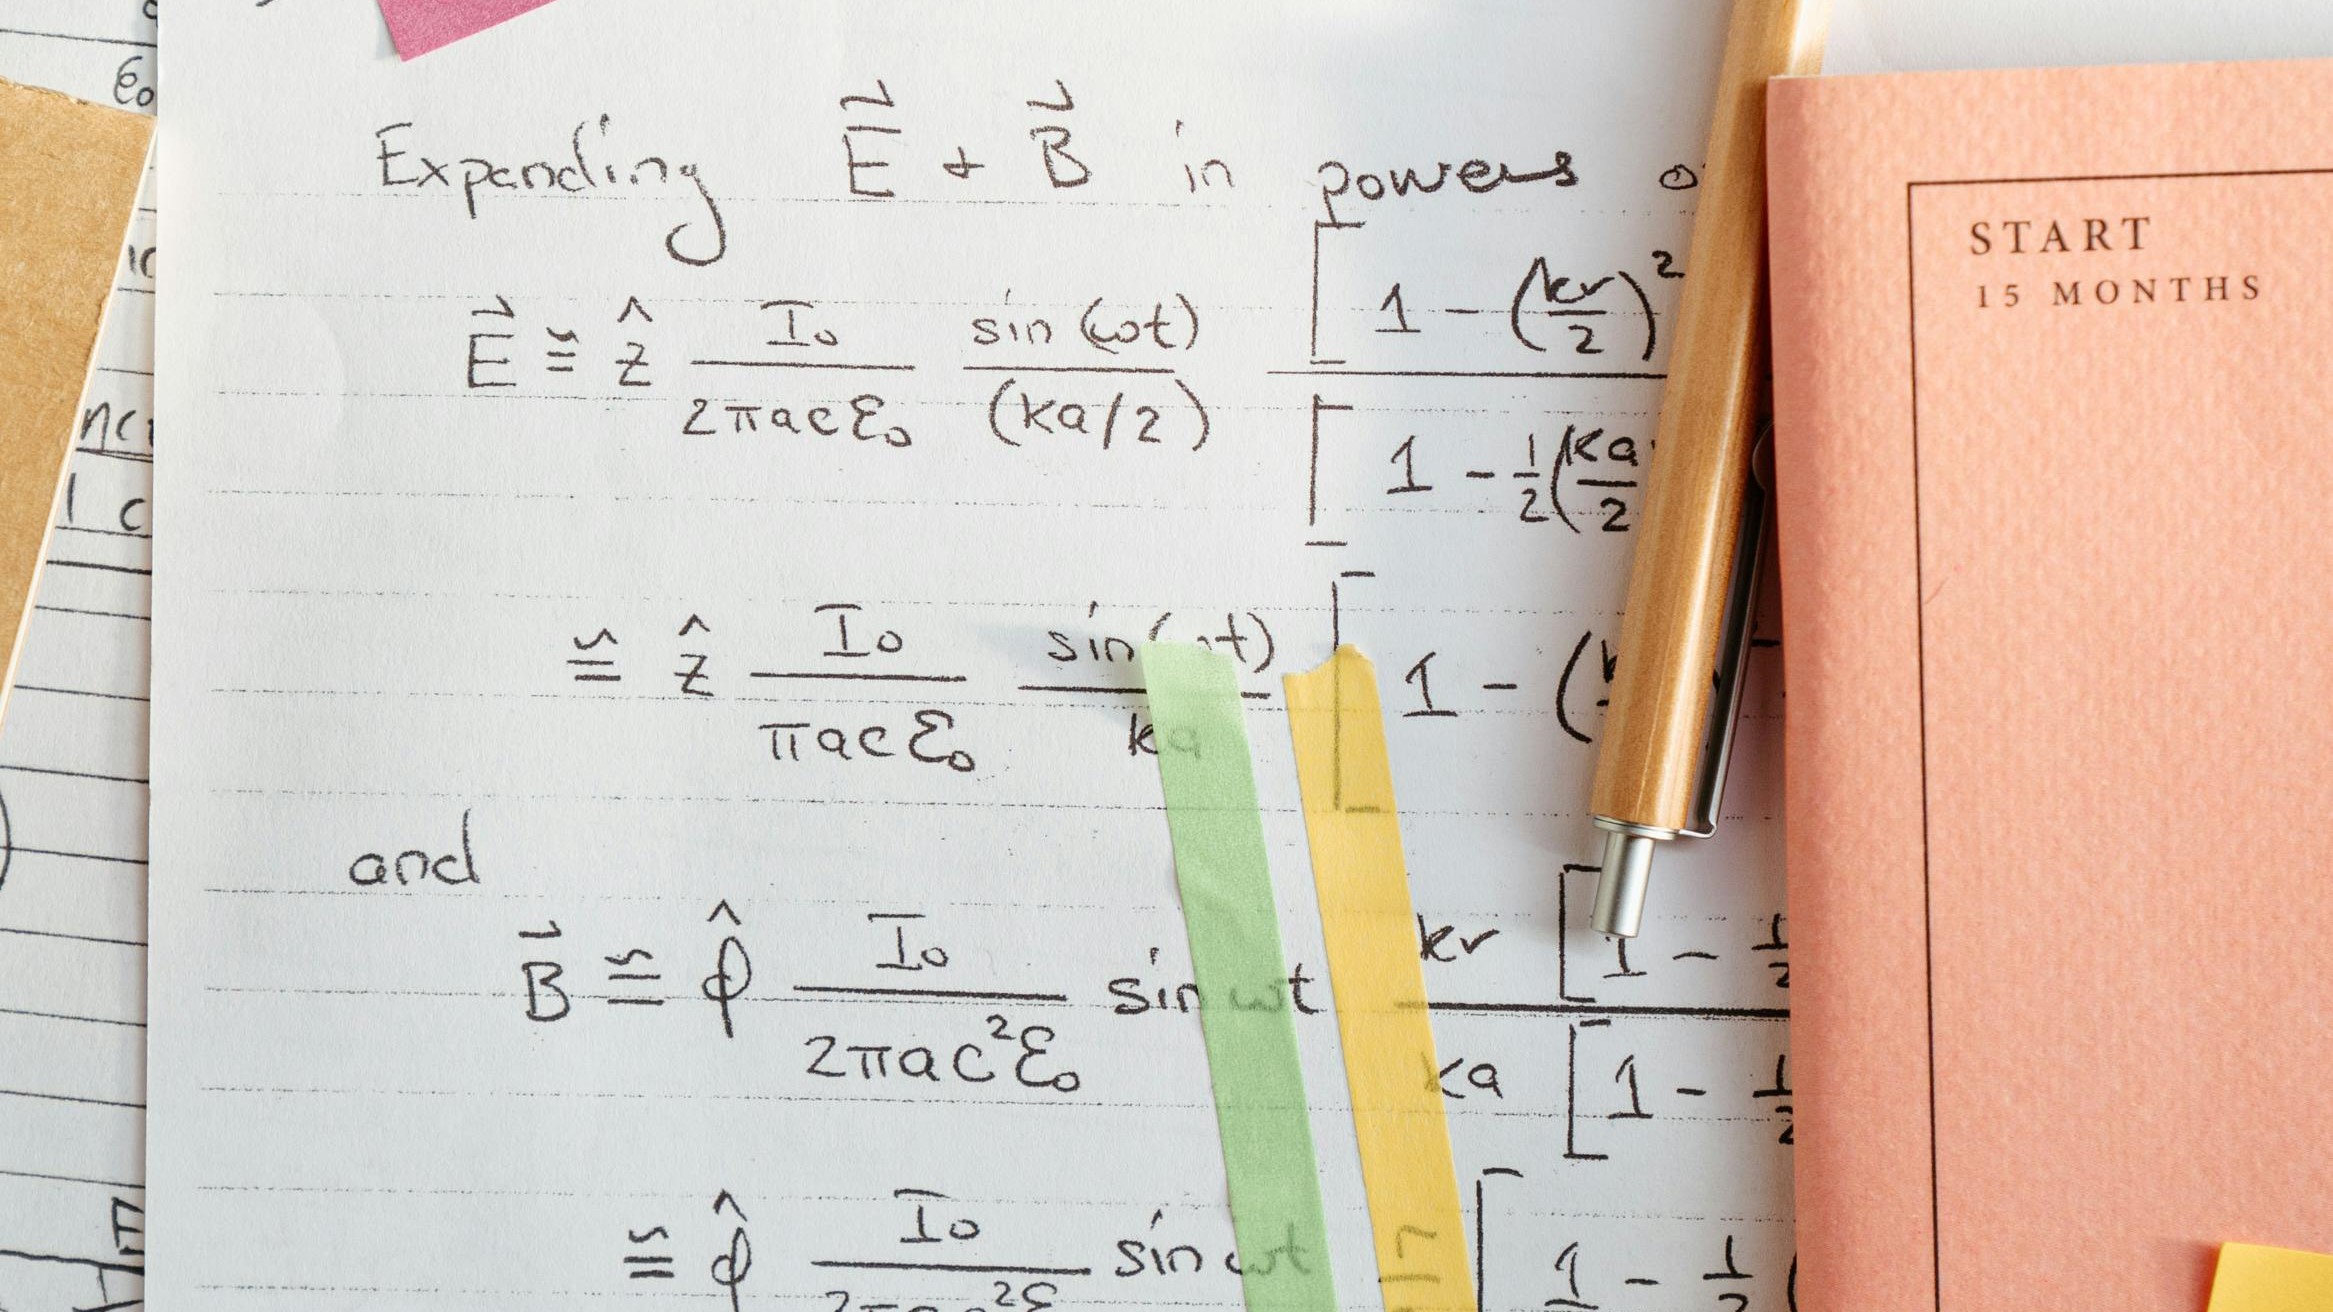 Expanding E⃗ + B⃗ in powers
E⃗ ≅ ẑ I₀/(2πacε₀) sin(ωt)/(ka/2) [1 - (kr/2)²
[1 - 1/2(ka/2
≅ ẑ I₀/(πacε₀) sin(ωt)/ka [1 - (
and
B⃗ ≅ φ̂ I₀/(2πac²ε₀) sin ωt kr [1 - 1/2
ka [1 - 1/2
≅ φ̂ I₀/(2πac²ε sin ωt [1 - 1/2 (
ε₀
START
15 MONTHS